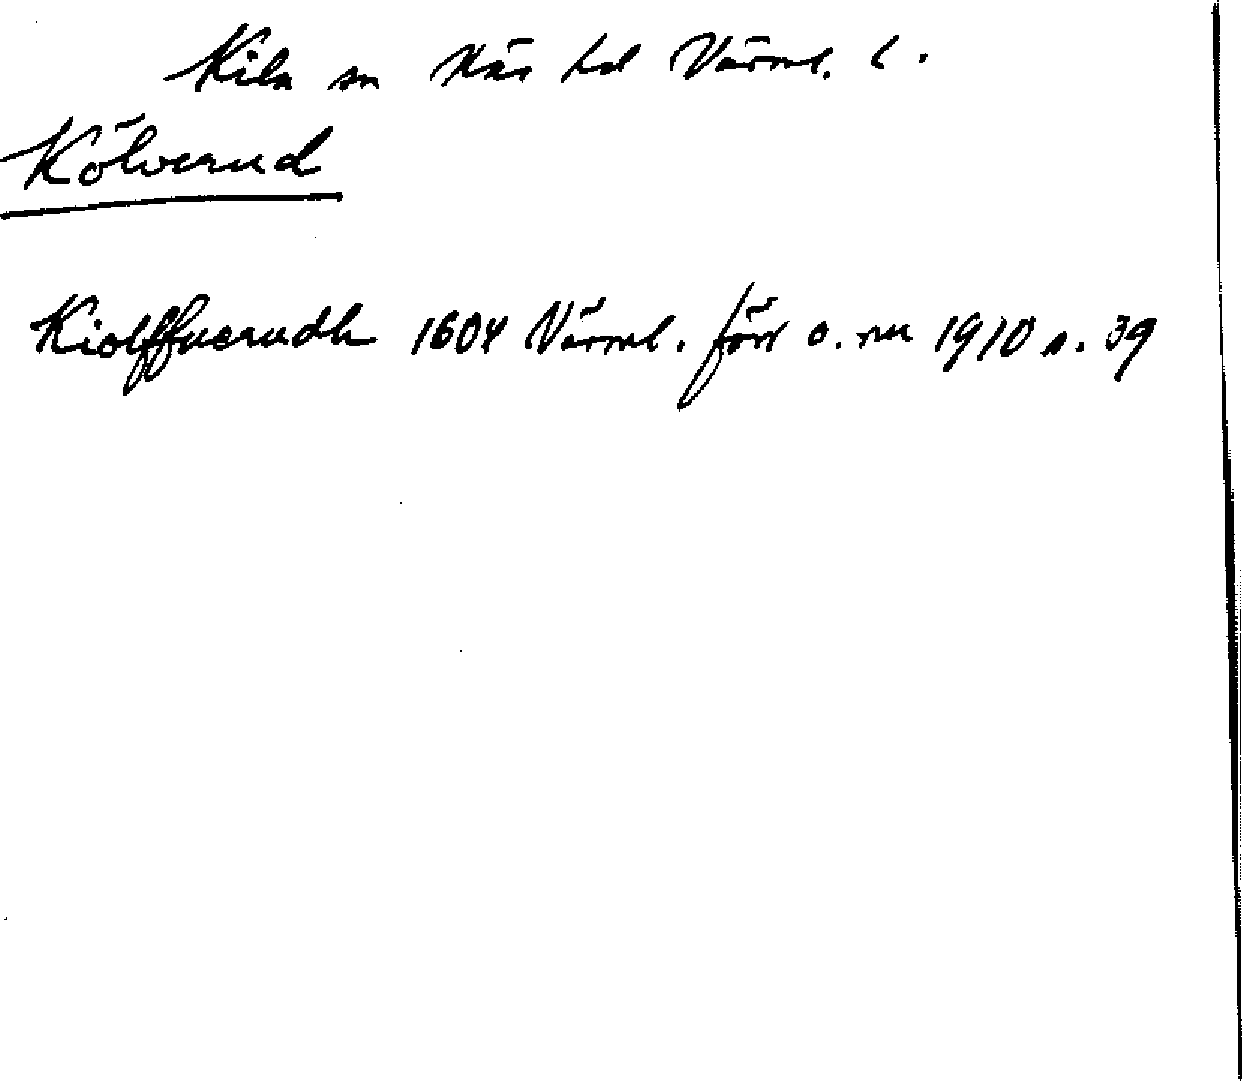 Kila sn Näs hd Värml. l.
Kölverud
Kiolffuerudh 1604 Värml. förr o. nu 1910 s. 39